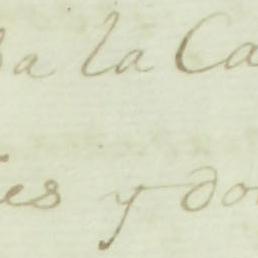 Ba la Ca
tes y do